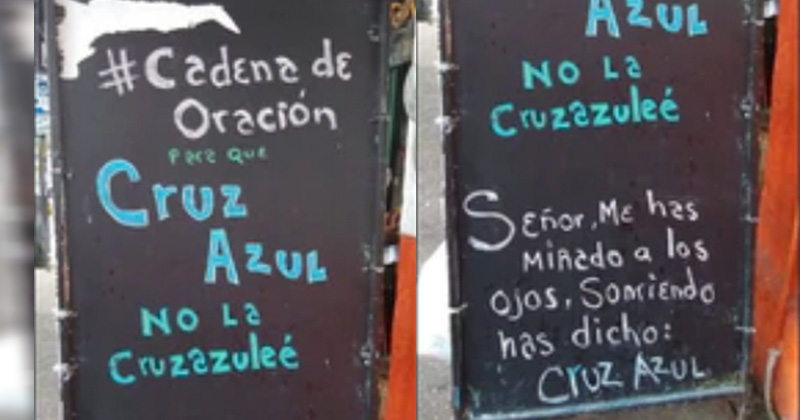 #Cadena de
Oración
Para que
Cruz
Azul
No La
Cruzazuleé
Azul
No La
Cruzazuleé
Señor, Me has
Mirado a los
ojos, Sonriendo
has dicho:
Cruz Azul